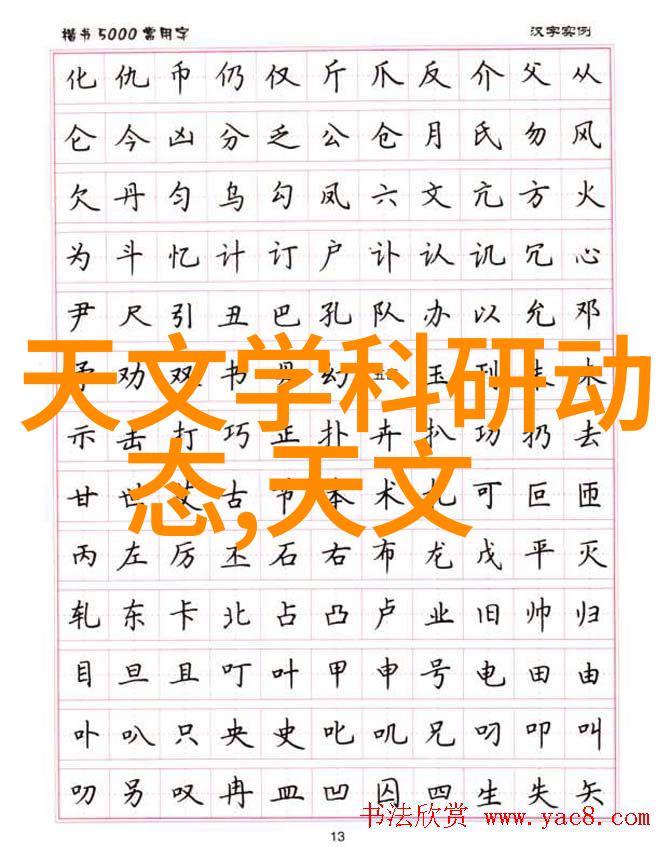 楷书5000常用字
汉字实例
化仇币仍仅斤爪反介父从
仑今凶分乏公仓月氏勿风
欠丹匀乌勾凤六文亢方火
为斗忆计订户讣认讥冗心
尹尺引丑巴孔队办以允邓
予劝双书幻玉刊
天文学科研动
示击打巧正扑卉扒功扔去
甘世艾古节本术札可叵匝
态,天文
丙左厉丕石右布龙戊平灭
轧东卡北占凸卢业旧帅归
目旦且叮叶甲申号电田由
卟叭只央史叱叽兄叼叩叫
叻另叹冉皿凹囚四生失矢
书法欣赏 www.yac8.com
13